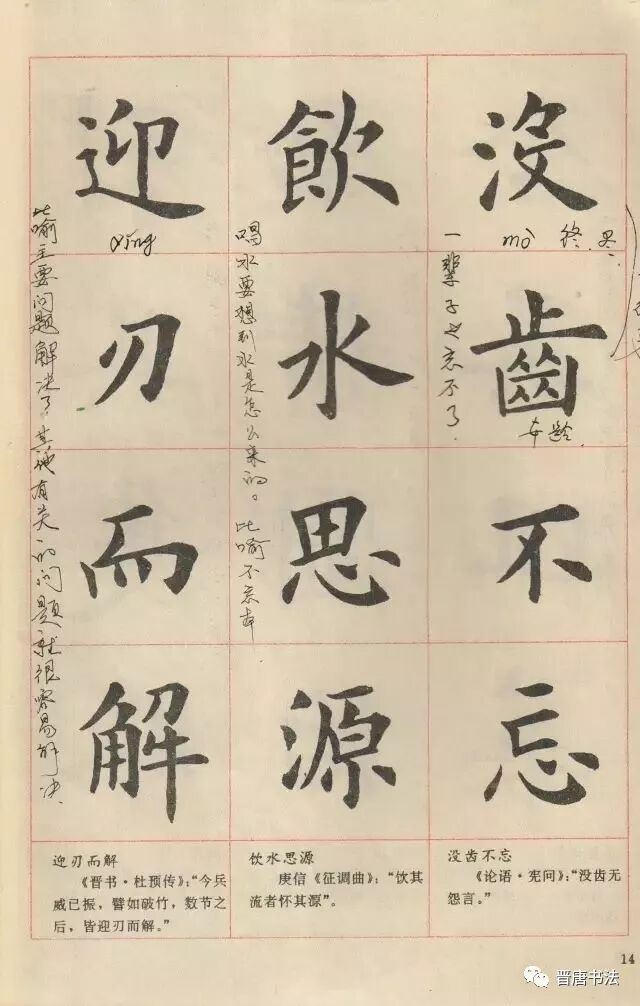 没齿不忘
飲水思源
迎刃而解
mò 终
年龄
一辈子也忘不了.
喝水要想到水是怎么来的。比喻不忘本
yíng
比喻主要问题解决了,其他有关的问题就很容易解决
没齿不忘
《论语·宪问》:“没齿无
怨言。”
饮水思源
庚信《征调曲》:“饮其
流者怀其源”。
迎刃而解
《晋书·杜预传》:“今兵
威已振,譬如破竹,数节之
后,皆迎刃而解。”
14
晋唐书法